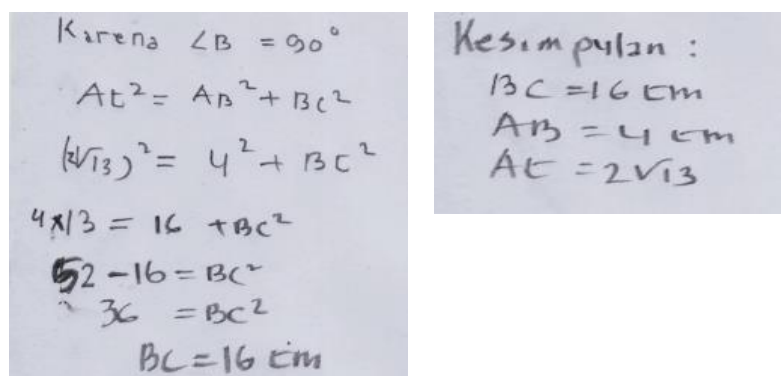 Karena ∠B = 90°
AC² = AB² + BC²
(2√13)² = 4² + BC²
4x13 = 16 + BC²
52 - 16 = BC²
36 = BC²
BC = 16 cm
Kesimpulan :
BC = 16 cm
AB = 4 cm
AC = 2√13